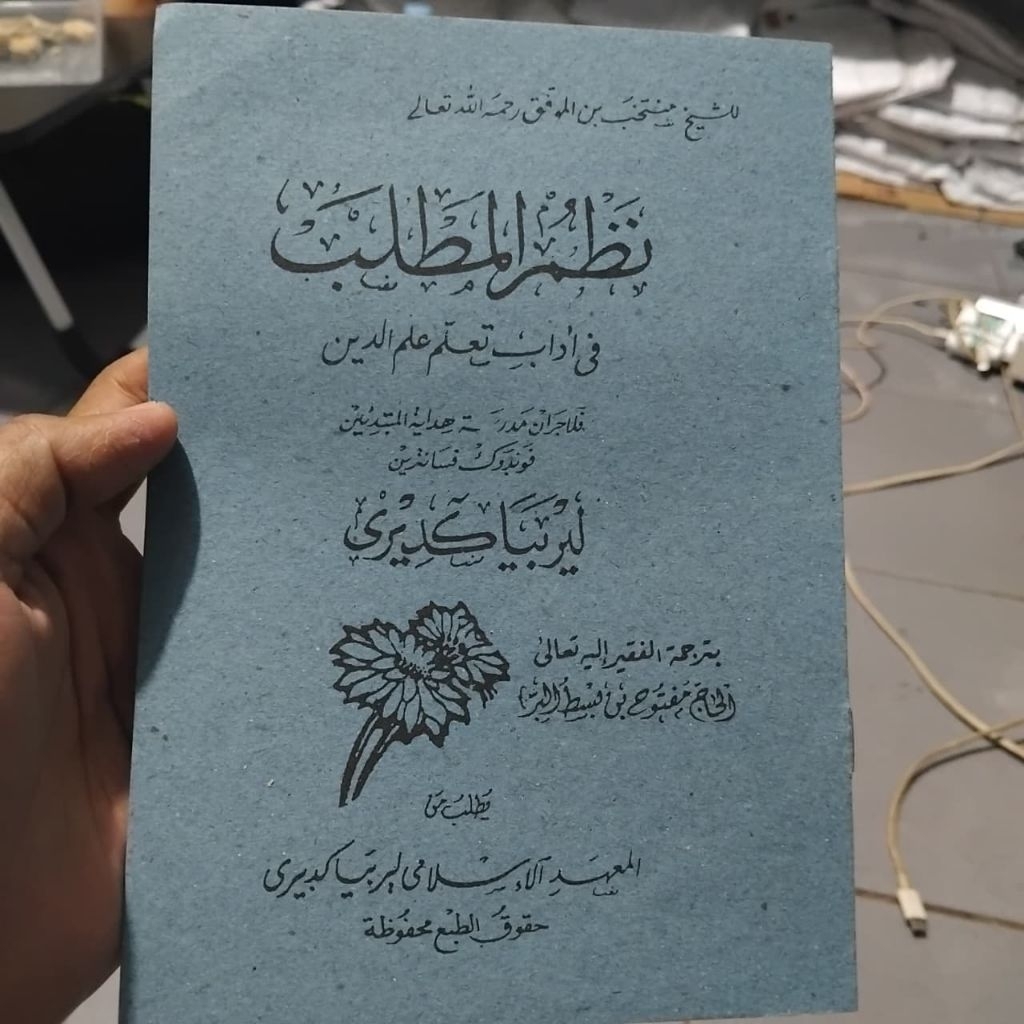 للشيخ منتخب بن الموفق رحمه الله تعالى
نَظْمُ الْمَطْلَبْ
في اداب تعلّم علم الدين
فلاجران مدرسة هداية المبتدئين
فوندوك فسانترين
ليربيا كديري
بترجمة الفقير إليه تعالى
الحاج مفتوح بن بسط البر
يطلب من
المعهد الإسلامي ليربيا كديري
حقوق الطبع محفوظة